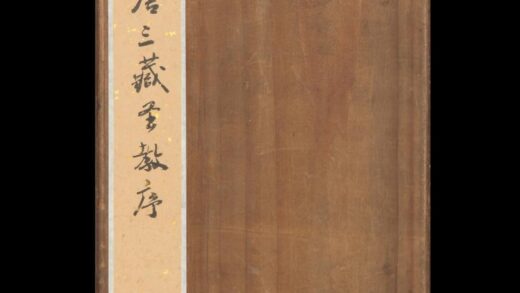 唐三藏圣教序